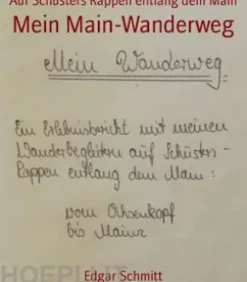 Auf Schusters Rappen entlang dem Main
Mein Main-Wanderweg
Mein Wanderweg
Ein Erlebnisbericht mit meinen
Wanderbegleitern auf Schusters-
Rappen entlang dem Main:
vom Ochsenkopf
bis Mainz
HOEPLI
Edgar Schmitt